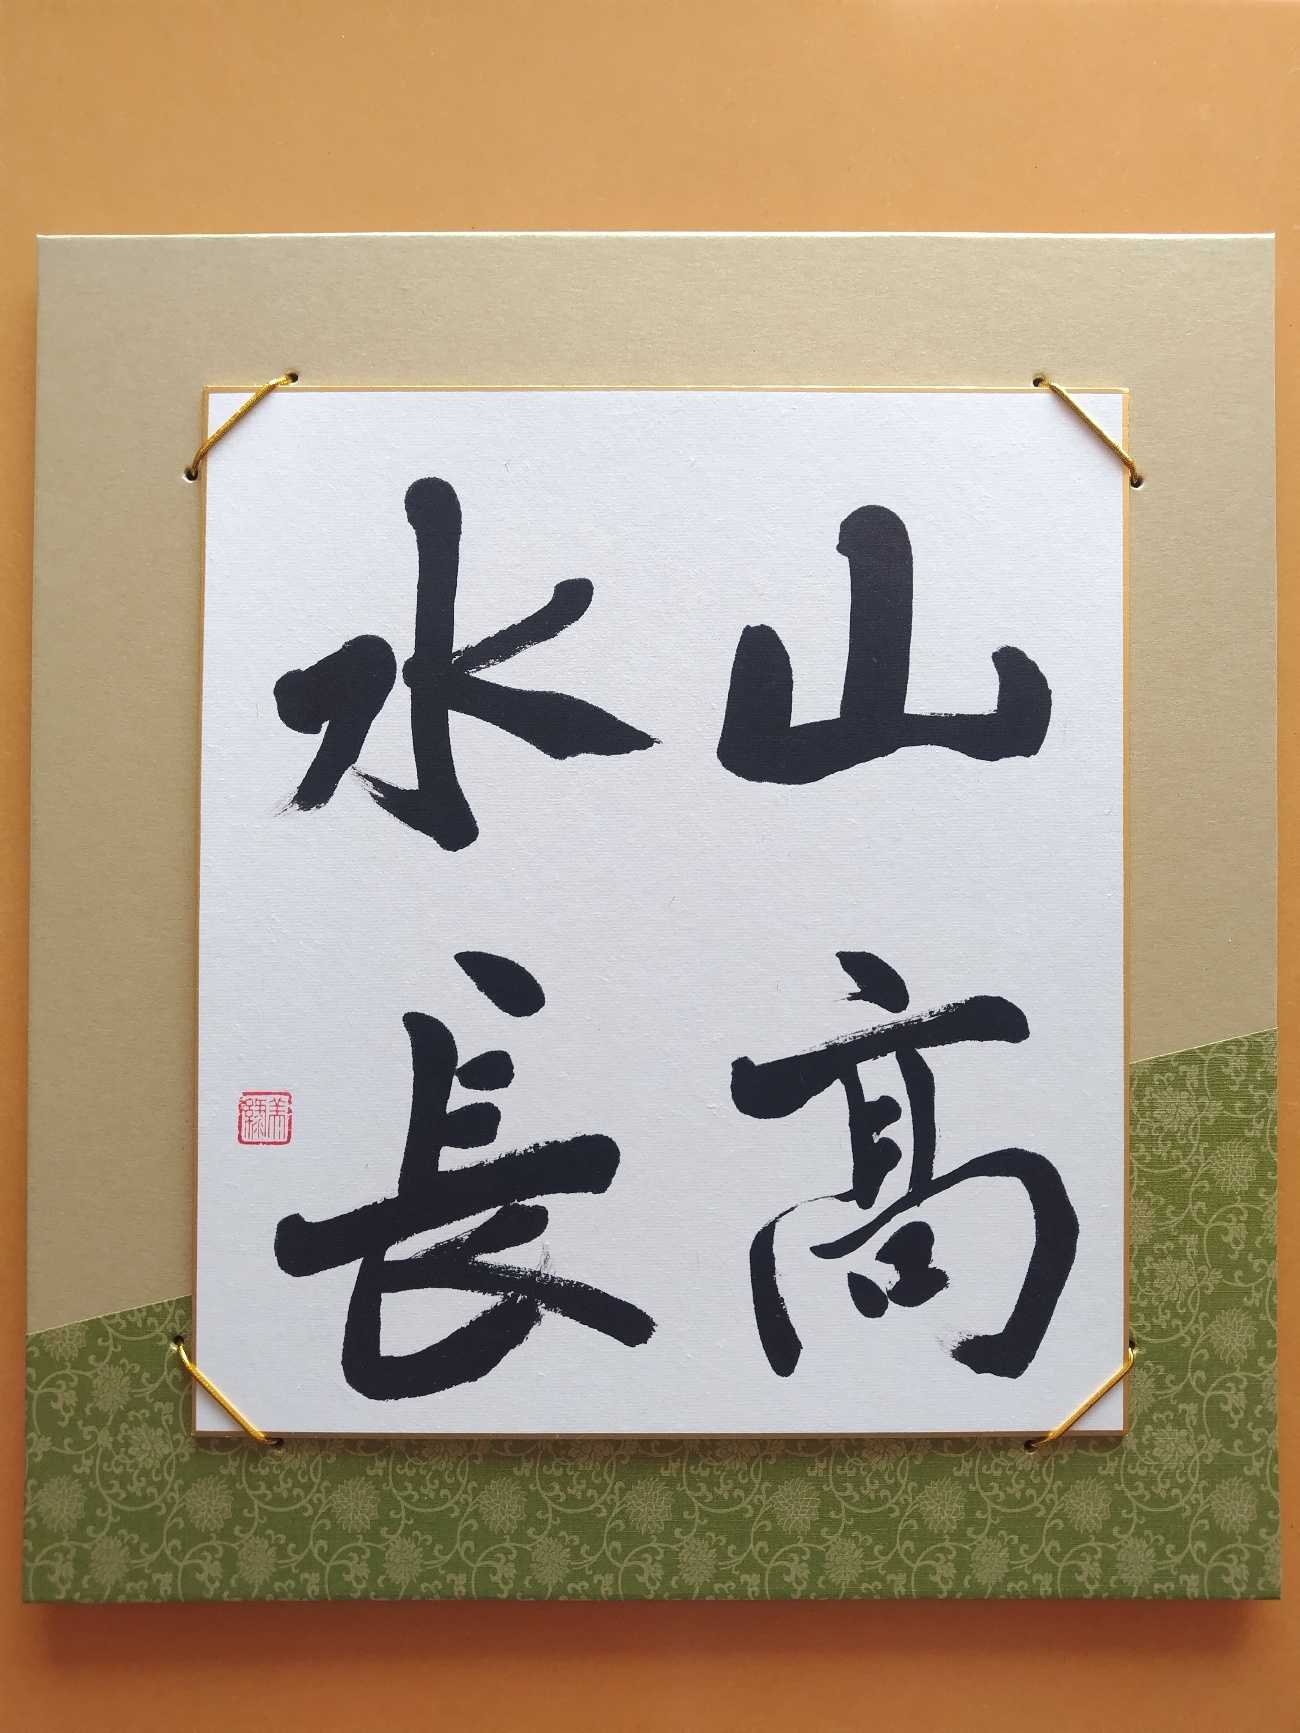 山高
水長